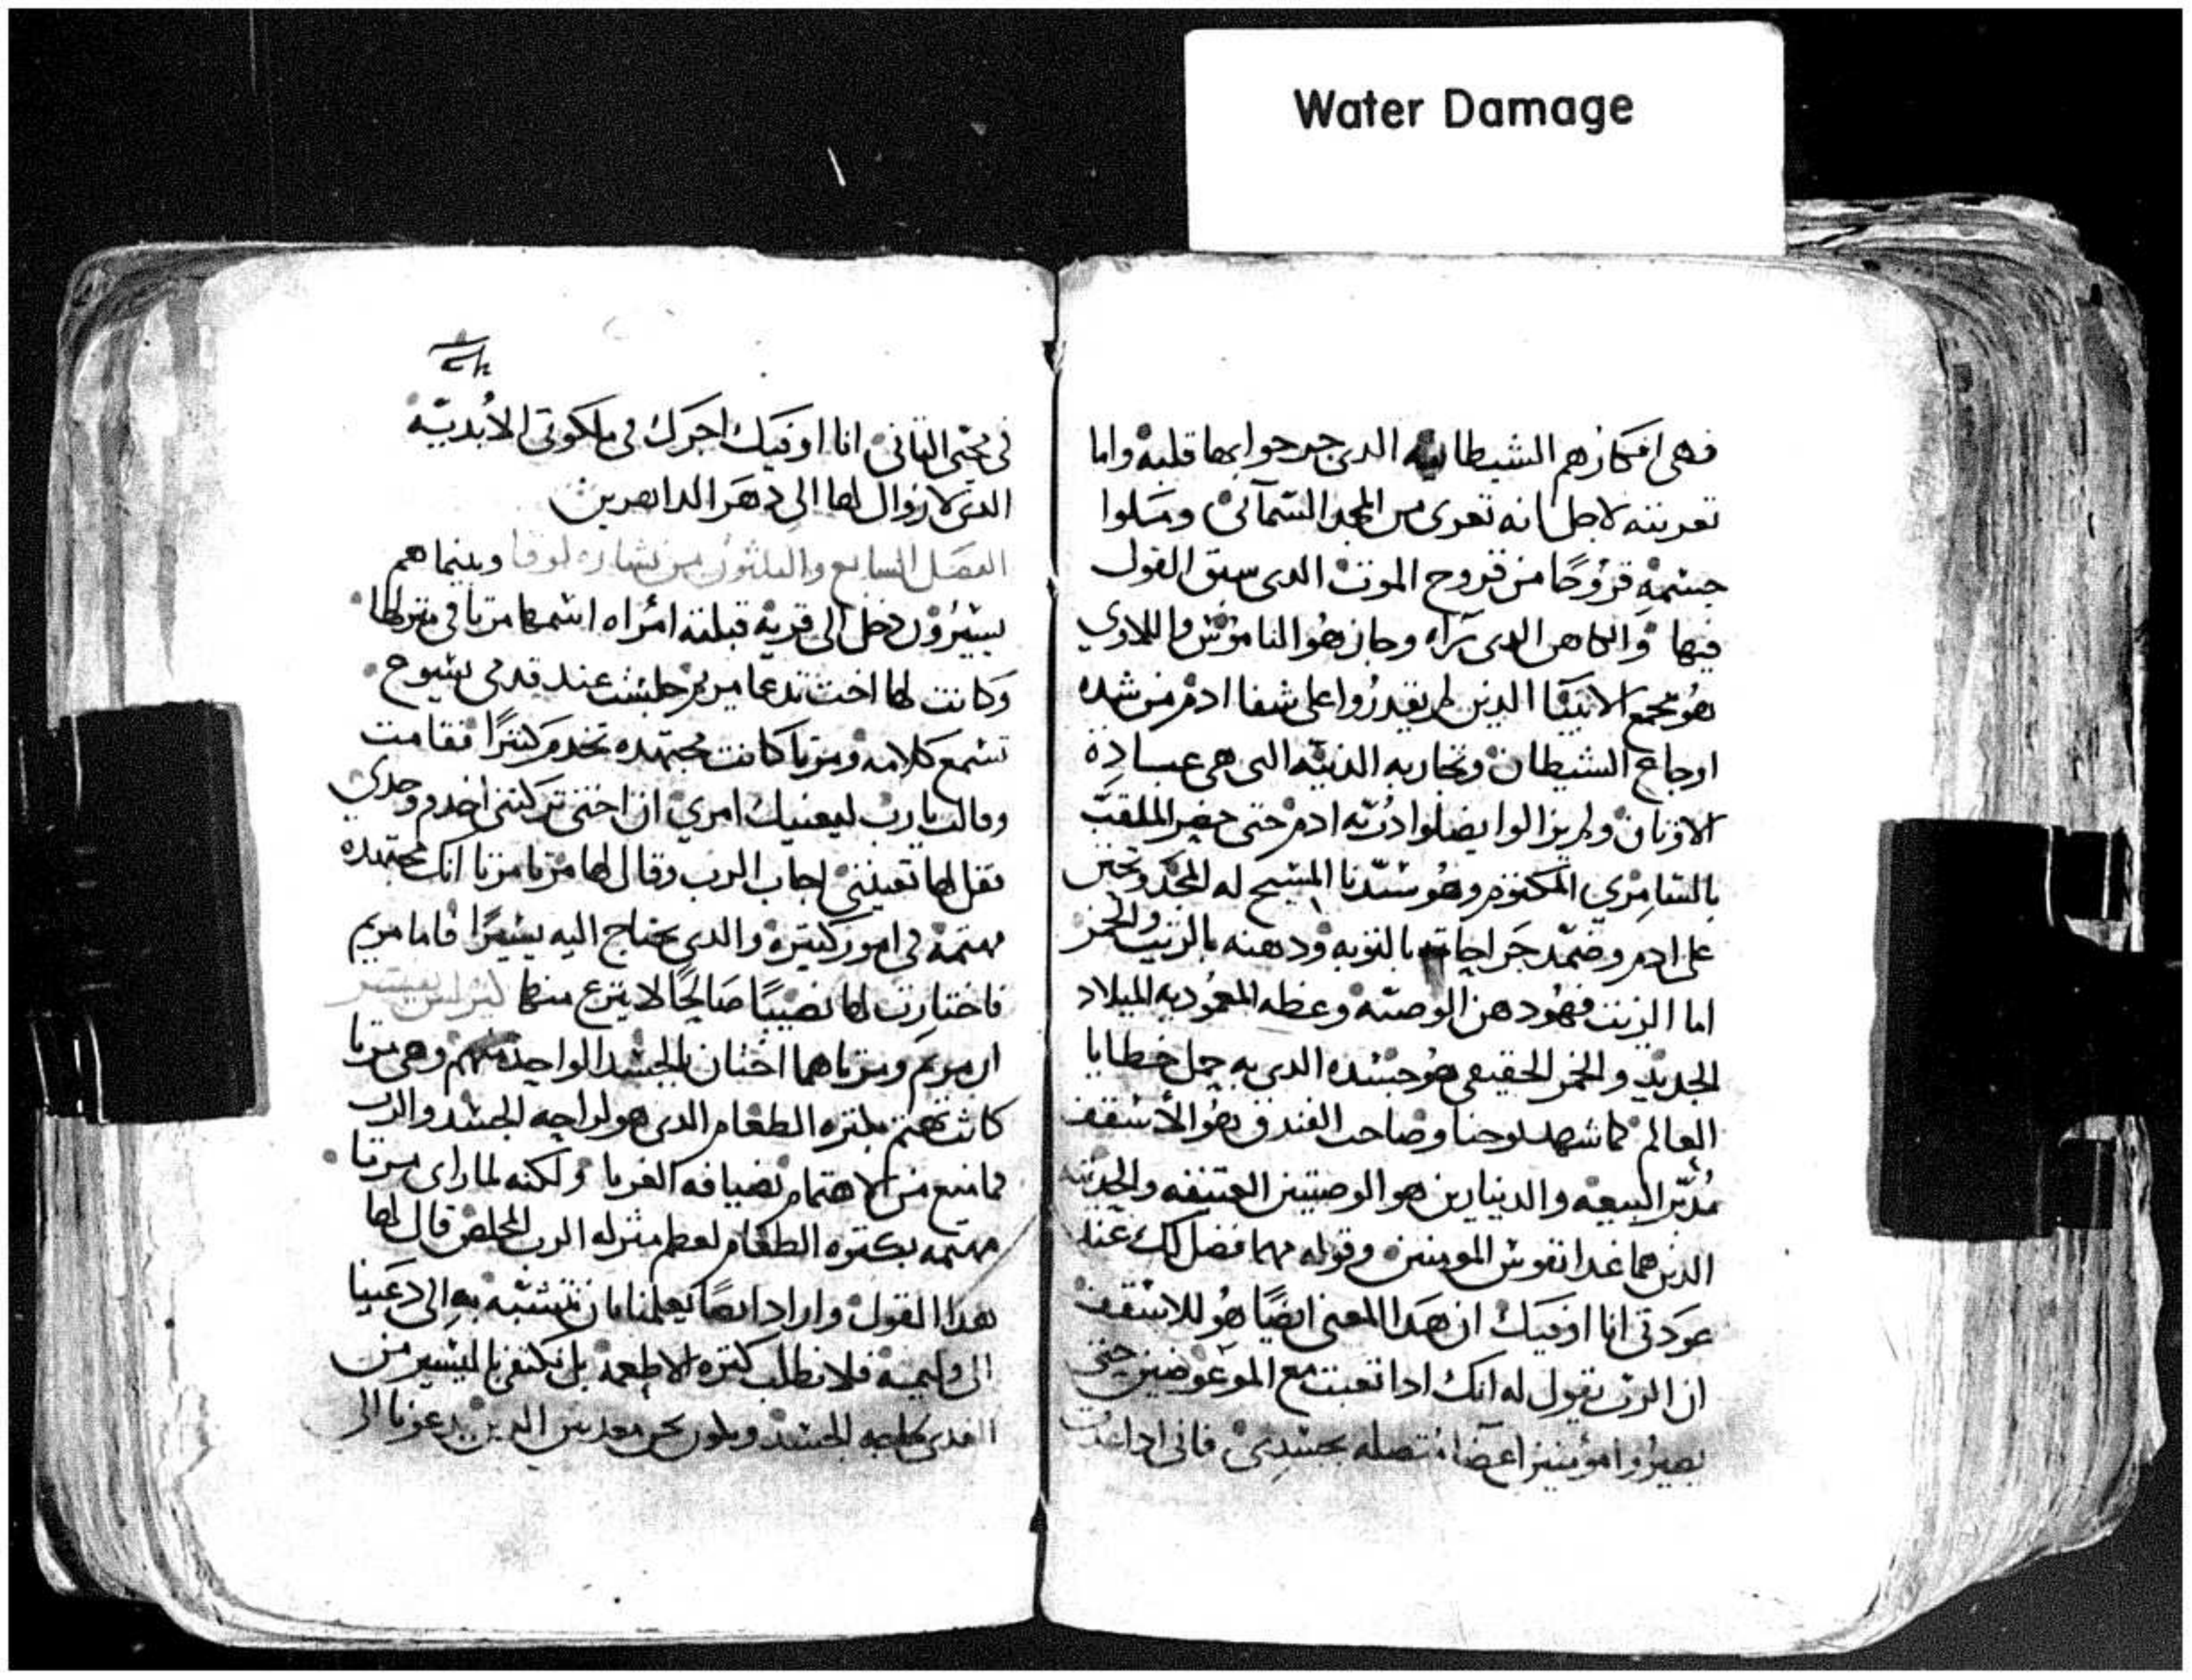 Water Damage
فهى افكارهم الشيطانيه الدى جرحوا بها قلبه واما
تعريته لاجل انه تعرى من المجد السمآئى ومسلوا
جسمه قروحًا من قروح الموت الدى سبق القول
فيها والكاهن الدى رآه وجاز هو الناموس واللاوي
هو مجمع الانبيا الدين لم يقدروا على شفا ادم من شده
اوجاع الشيطان وتجاربه الدنيه التى هى عبادة
الاوتان ولم يزالوا يضلوا درّيه ادم حتى حضر الملقب
بالسامري المكتوم وهو سيّدنا المسيح له المجد وتحنن
على ادم وضمّد جراحاته بالتوبه ودهنه بالزيت والخمر
اما الزيت فهو دهن الوصيه وعظه المعموديه الميلاد
الجديد والخمر الحقيقى هو جسده الدى به حمل خطايا
العالم كما شهد يوحنا وصاحب الفندق هو الاسقف
مُدبّر البيعه والدينارين هو الوصيتين العتيقه والحديثه
الدين هما غدا نفوس المومنين وقوله مهما فضل لك عند
عودتى انا اوفيك ان هدا المعنى ايضًا هو للاسقف
ان الرب يقول له انك ادا تعبت مع الموعوضين حتى
يصيروا مؤمنين اعضا متصله بجسدى فانى ادا عدت
فى مجيى التانى انا اوفيك اجرك فى ملكوتى الابديّه
الدى لا زوال لها الى دهر الداهرين
الفصل السابع والثلثون من بشاره لوقا وبينما هم
يسيرون دخل الى قرية قبلته امراه اسمها مرتا فى منزلها
وكانت لها اخت تدعا مريم جلست عند قدمى يسوع
تسمع كلامه ومرتا كانت مجتهده تخدم كتيرًا فقامت
وقالت يارب ليعنيك امري ان اختى تركتنى اخدم وحدي
فقل لها تعيننى اجاب الرب وقال لها مرتا مرتا انك مجتهده
مهتمة فى امور كتيره والدى يحتاج اليه يسيرًا فاما مريم
فاختارت لها نصيبًا صالحًا لا ينزع منها
ان مريم ومرتا هما اختان بالجسد الواحده منهم وهى مرتا
كانت تهتم بكتره الطعام الدى هو لراحه الجسد والرب
فما منع من الاهتمام بضيافه الغربا ولكنه لما راى مرتا
مهتمه بكتره الطعام لعظم منزله الرب المخلص قال لها
هدا القول واراد ايضًا يعلمنا بان نتشبه به الى دعينا
الى وليمة فلا نطلب كتره الاطعمه بل نكتفى باليسير من
الجسد ونكون نحن الدين يدعونا الى